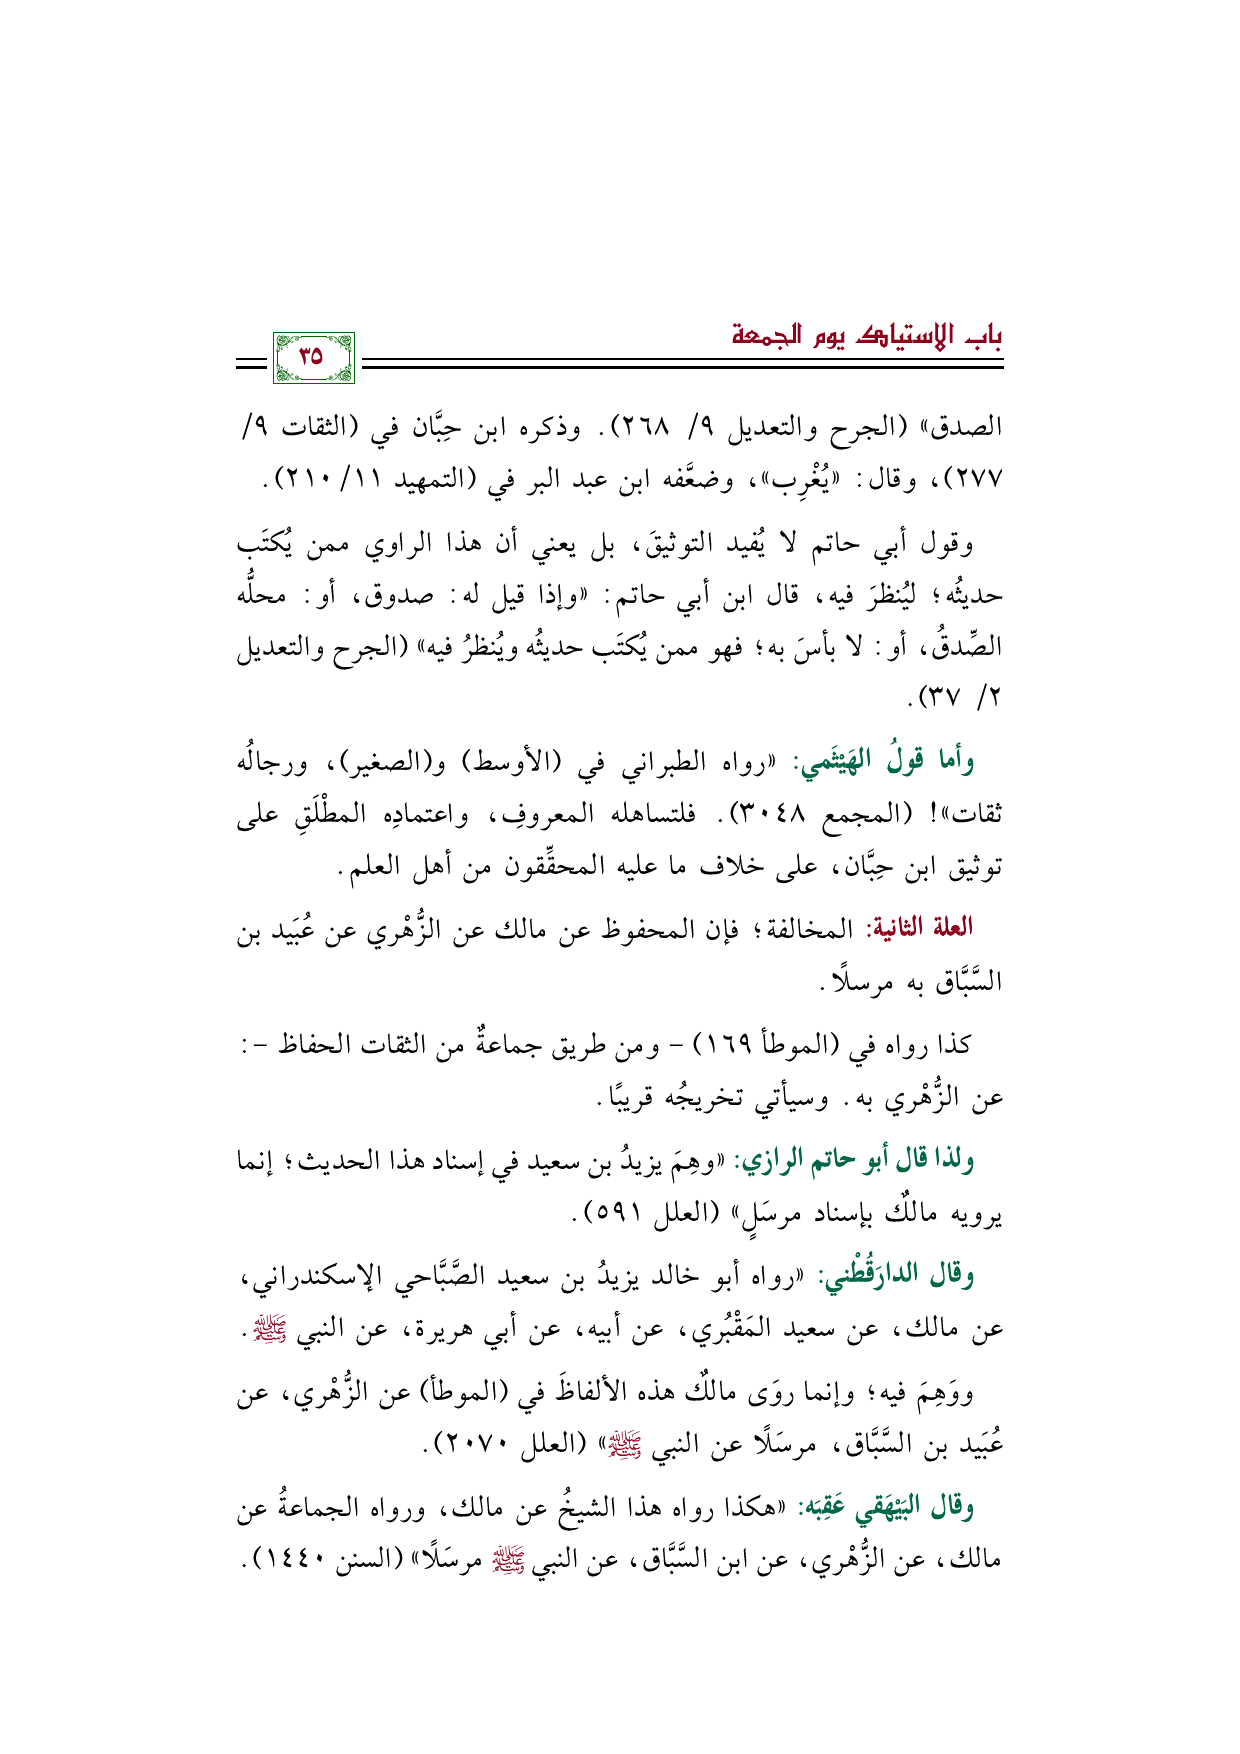 باب الاستياك يوم الجمعة
٣٥
الصدق» (الجرح والتعديل ٩/ ٢٦٨). وذكره ابن حِبَّان في (الثقات ٩/
٢٧٧)، وقال: «يُغْرِب»، وضعَّفه ابن عبد البر في (التمهيد ١١/ ٢١٠).
وقول أبي حاتم لا يُفيد التوثيقَ، بل يعني أن هذا الراوي ممن يُكتَب
حديثُه؛ ليُنظرَ فيه، قال ابن أبي حاتم: «وإذا قيل له: صدوق، أو: محلُّه
الصِّدقُ، أو: لا بأسَ به؛ فهو ممن يُكتَب حديثُه ويُنظرُ فيه» (الجرح والتعديل
٢/ ٣٧).
وأما قولُ الهَيْثَمي: «رواه الطبراني في (الأوسط) و(الصغير)، ورجالُه
ثقات»! (المجمع ٣٠٤٨). فلتساهله المعروفِ، واعتمادِه المطْلَقِ على
توثيق ابن حِبَّان، على خلاف ما عليه المحقِّقون من أهل العلم.
العلة الثانية: المخالفة؛ فإن المحفوظ عن مالك عن الزُّهْري عن عُبَيد بن
السَّبَّاق به مرسلًا.
كذا رواه في (الموطأ ١٦٩) - ومن طريق جماعةٌ من الثقات الحفاظ -:
عن الزُّهْري به. وسيأتي تخريجُه قريبًا.
ولذا قال أبو حاتم الرازي: «وهِمَ يزيدُ بن سعيد في إسناد هذا الحديث؛ إنما
يرويه مالكٌ بإسناد مرسَلٍ» (العلل ٥٩١).
وقال الدارَقُطْني: «رواه أبو خالد يزيدُ بن سعيد الصَّبَّاحي الإسكندراني،
عن مالك، عن سعيد المَقْبُري، عن أبيه، عن أبي هريرة، عن النبي ﷺ.
ووَهِمَ فيه؛ وإنما روَى مالكٌ هذه الألفاظَ في (الموطأ) عن الزُّهْري، عن
عُبَيد بن السَّبَّاق، مرسَلًا عن النبي ﷺ» (العلل ٢٠٧٠).
وقال البَيْهَقي عَقِبَه: «هكذا رواه هذا الشيخُ عن مالك، ورواه الجماعةُ عن
مالك، عن الزُّهْري، عن ابن السَّبَّاق، عن النبي ﷺ مرسَلًا» (السنن ١٤٤٠).